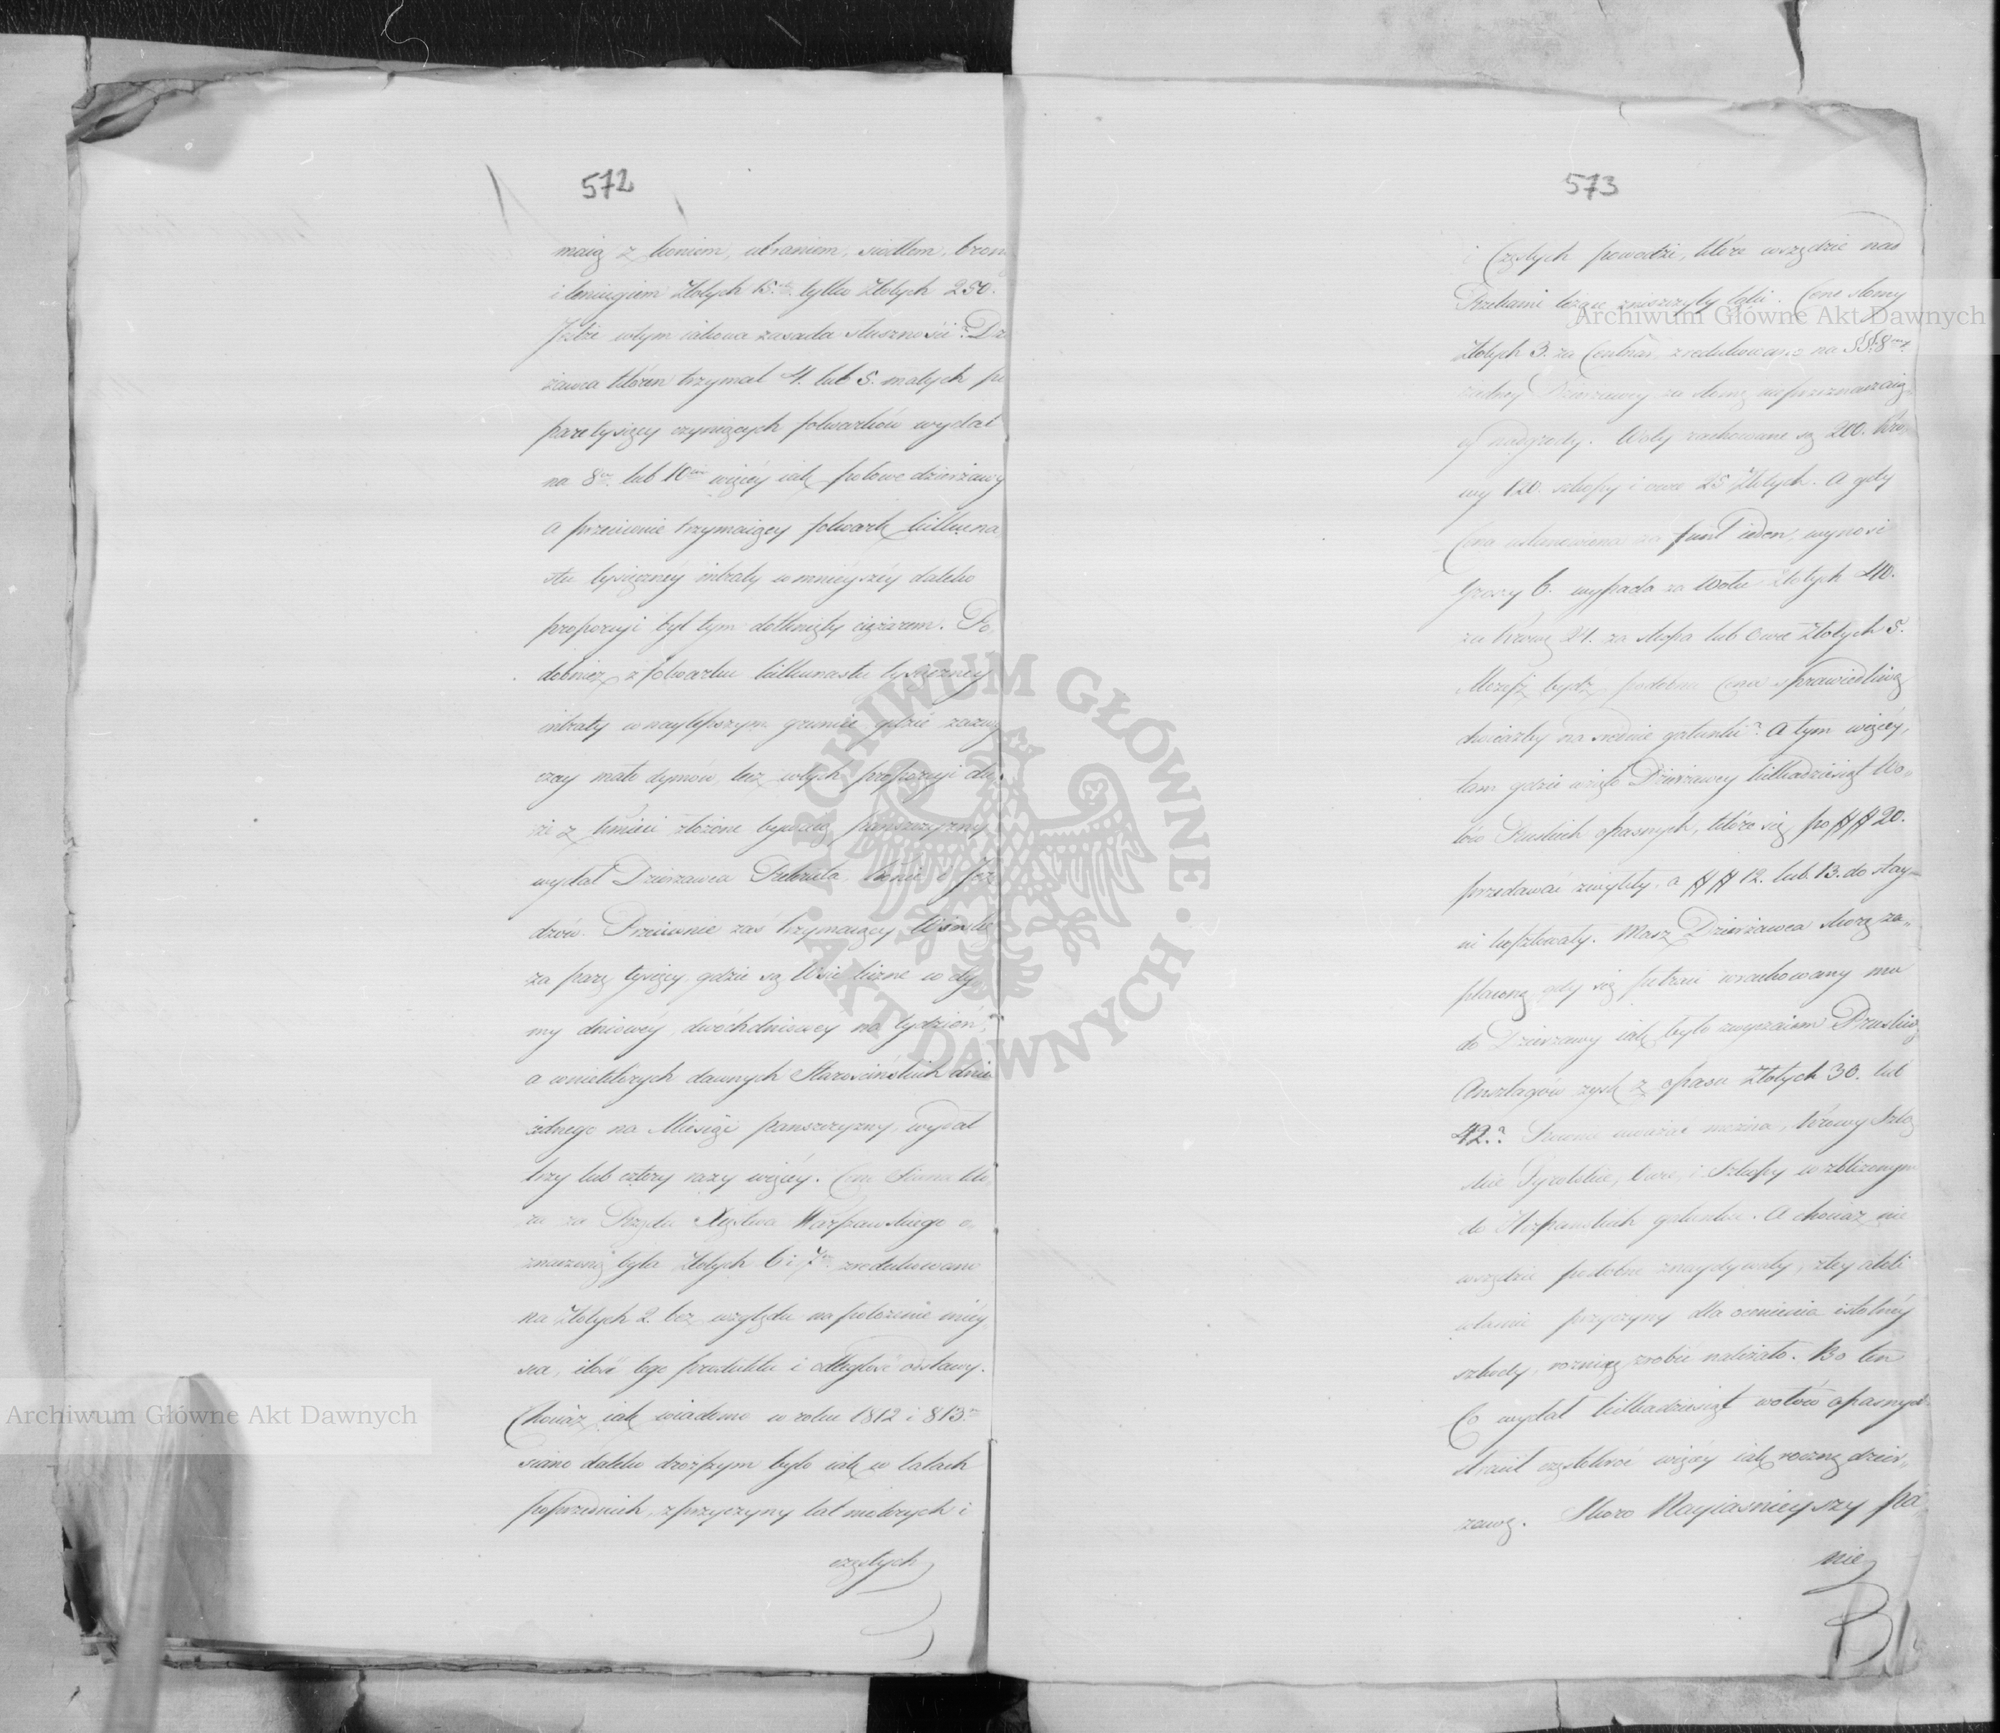 572
maią z koniem, ubraniem, siodłem, bron
i leniugiem Złotych 15. tylko Złotych 250.
Jestże wtym iakowa zasada słuszności? Dz
żawca któren trzymał 4. lub 5. małych po
parę tysięcy czyniących folwarków wydał
na 8 lub 10 więcéy iak połowę dzierżawy
a przeciwnie trzymaiący folwark kilkuna,
stu tysięcznéy intraty w mnieyszéy daleko
proporcyi był tym dotknięty ciężarem. Po,
dobnież z folwarku kilkunastu tysięczney
intraty w naylepszym gruncie gdzie zazwy
czay mało dymów, lecz wtych proporcyi du,
że z kmieci złożone bywaią pańszczyzny
wydał Dzierżawca Rekruta, konie i Jeź
dzców. Przeciwnie zaś trzymaiący Wioskę
za parę tysięcy gdzie są Wsie liczne w dy,
my dniowéy, dwóchdniowéy na tydzień,
a w niektórych dawnych Starościńskich dnia
iednego na Miesiąc pańszczyzny, wydał
trzy lub cztery razy więcéy. Cena Siana któ,
ra za Rządu Xięstwa Warszawskiego o,
znaczoną była Złotych 6 i 7 zredukowano
na Złotych 2. bez względu na położenie miéy,
sca, ilość tego produktu i odległość odstawy.
Chociaż iak wiadomo w roku 1812 i 813
siano daleko droższym było iak w latach
poprzednich, z przyczyny lat mokrych i
częstych
573
i Częstych powodzi, które wszędzie nad
Rzekami leżące zniszczyły łąki. Cenę słomy
Złotych 3. za Centnar, zredukowano na
żadney Dzierżawcy za słomę nieprzeznaczaiąc
éy nadgrody. Woły rachowane są 200. Kro,
wy 120. skopy i owce 25 Złotych. A gdy
Cena ustanowiona za funt ieden, wynosi
Groszy 6. wypada za Wołu Złotych 40.
za Krowę 24. za skopa lub Owcę Złotych 5.
Możesz bydź podobna Cena sprawiedliwą
chociażby na średnie gatunki? A tym więcéy,
tam gdzie wzięto Dzierżawcy kilkadziesiąt Wo,
łów Ruskich opasnych, które się po ## 20.
przedawać zwykły, a ## 12. lub 13. do stay,
ni kosztowały. Masz Dzierżawca skorą za,
płacone, gdy się potrąci wrachowany mu
do Dzierżawy iak było zwyczaiem Pruskich
Anszlagów zysk z opasu Złotych 30. lub
42.? Równie uważać można, Krowy Szląz
skie Tyrolskie, Owce, i Skopy w zbliżonym
do Hiszpańskich gatunku. A chociaż nie
wszędzie podobne znaydywały, z tey atoli
właśnie przyczyny dla ocenienia istotnéy
szkody, roznicę zrobić należało. Bo ten
Co wydał kilkadziesiąt wołów opasnych
stracił częstokroć więcéy iak roczną dzier,
żawę. Skoro Nayiaśnieyszy Pa,
nie
Archiwum Główne Akt Dawnych
Archiwum Główne Akt Dawnych
· ARCHIWUM GŁÓWNE · AKT DAWNYCH